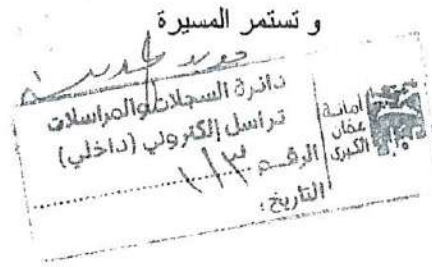 و تستمر المسيرة
دائرة السجلات والمراسلات
تراسل إلكتروني (داخلي)
الرقم ١/٣
التاريخ :
أمانة
عمّان
الكبرى